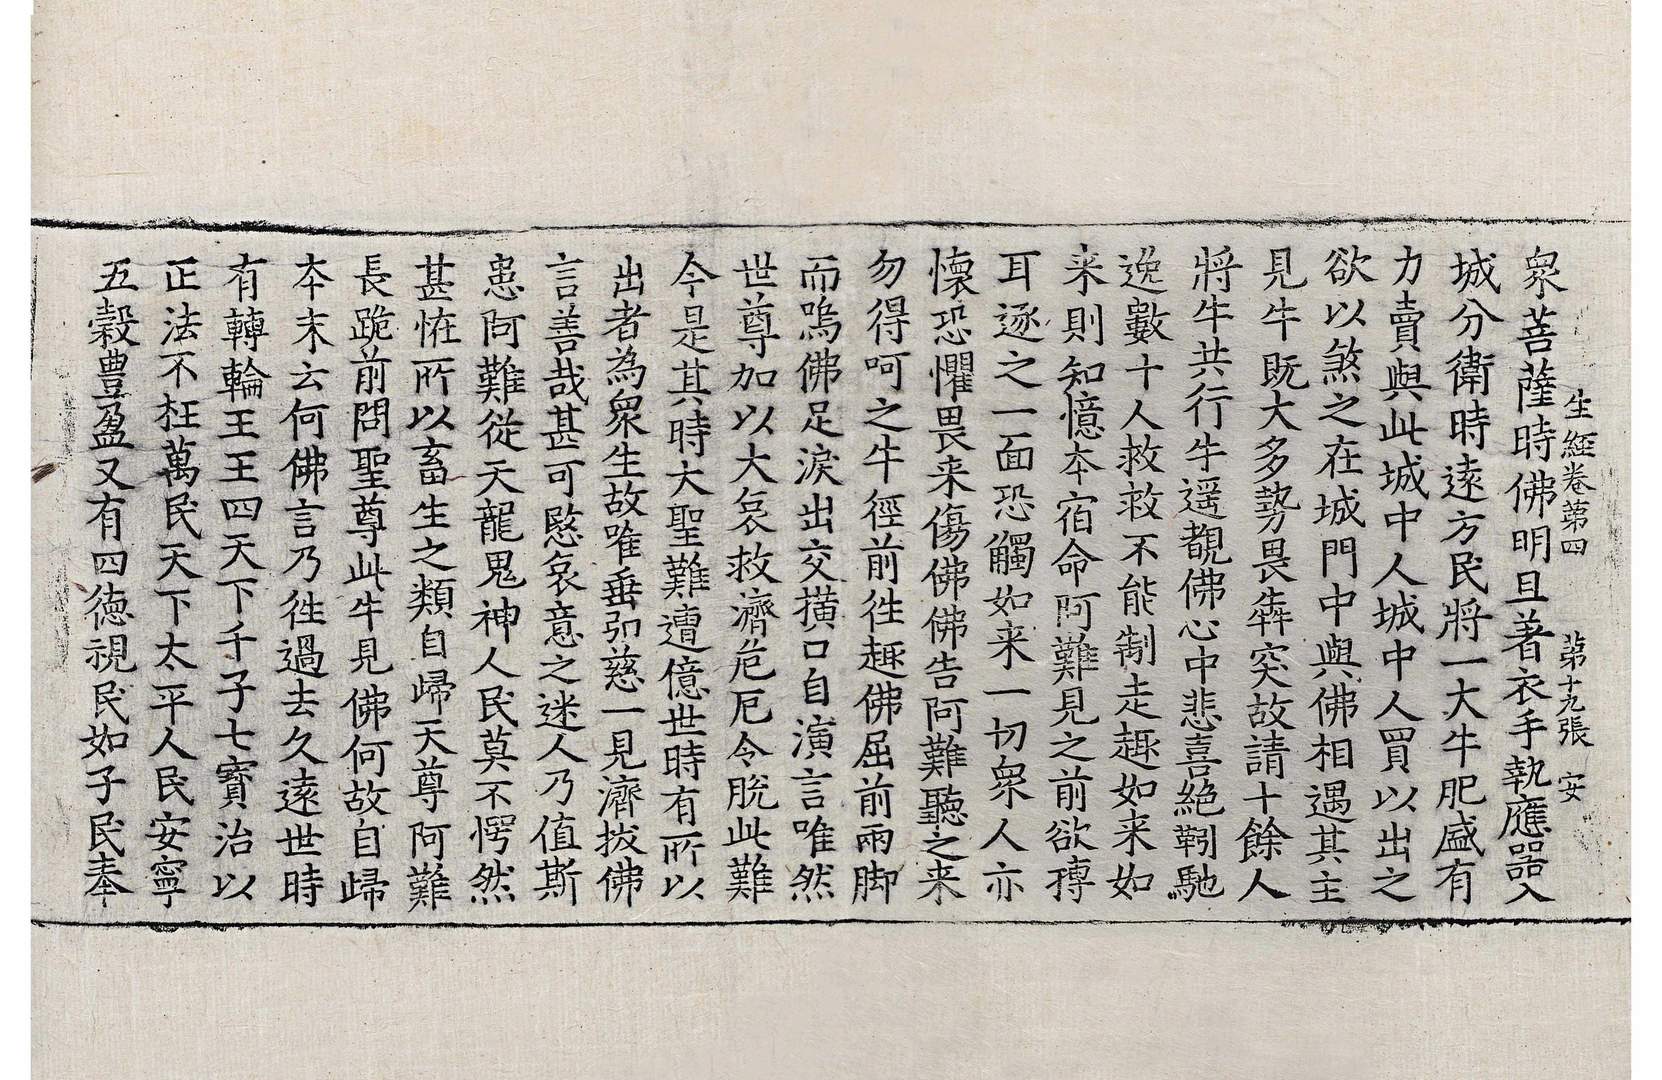 生經卷第四　第十九張　安
衆菩薩時佛明旦著衣手執應器入
城分衛時遠方民將一大牛肥盛有
力賣與此城中人城中人買以出之
欲以煞之在城門中與佛相遇其主
見牛既大多勢畏犇突故請十餘人
將牛共行牛遥覩佛心中悲喜絶靷馳
逸數十人救救不能制走趣如来如
来則知憶夲宿命阿難見之前欲摶
耳逐之一面恐觸如来一切衆人亦
懷恐懼畏来傷佛佛告阿難聽之来
勿得呵之牛徑前徃趣佛屈前兩脚
而嗚佛足淚出交撗口自演言唯然
世尊加以大哀救濟危厄令脫此難
今是其時大聖難遭億世時有所以
出者為衆生故唯垂弘慈一見濟拔佛
言善哉甚可愍哀意之迷人乃值斯
患阿難從天龍鬼神人民莫不愕然
甚恠所以畜生之類自歸天尊阿難
長跪前問聖尊此牛見佛何故自歸
夲末云何佛言乃徃過去久遠世時
有轉輪王王四天下千子七寳治以
正法不枉萬民天下太平人民安寧
五穀豊盈又有四徳視民如子民奉